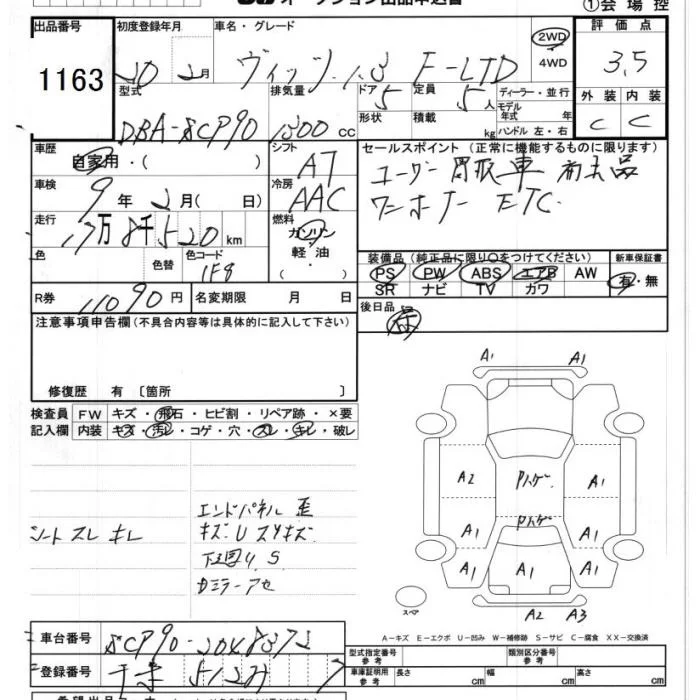 オークション出品申込書
①会場控
出品番号 初度登録年月 車名・グレード 2WD 4WD 評価点
1163 20 2月 ヴィッツ 1.3 F-LTD 3.5
型式 排気量 ドア 5 定員 5人 ディーラー・並行
DBA-SCP90 1300cc 形状 積載 kg モデル年式 年 ハンドル 左・右
外装 内装
C C
車歴 自家用・( ) シフト AT
車検 9年2月( 日) 冷房 AAC
走行 17万8千520km 燃料 ガソリン 軽油 ・( )
色 色替 色コード 1F8
セールスポイント (正常に機能するものに限ります)
ユーザー買取車
ワンオーナー ETC
装備品(純正品に限り○をつけてください) 新車保証書
PS PW ABS エアB AW 有・無
SR ナビ TV カワ
R券 11090円 名変期限 月 日
後日品
注意事項申告欄(不具合内容等は具体的に記入して下さい)
修復歴 有〔箇所 〕
検査員 FW キズ・飛石・ヒビ割・リペア跡・×要
記入欄 内装 キズ・汚レ・コゲ・穴・スレ・キレ・破レ
シートスレ キレ
エンドパネル 歪
キズU スリキズ
下廻り S
ミラーアセ
A1 A1
A2 A1
A1 A1
A1 A1 A1
A2 A3
スペア
A-キズ E-エクボ U-凹み W-補修跡 S-サビ C-腐食 XX-交換済
車台番号 SCP90-2048372
登録番号
型式指定番号 参考 類別区分番号 参考
車庫証明用 参考 長さ cm 幅 cm 高さ cm